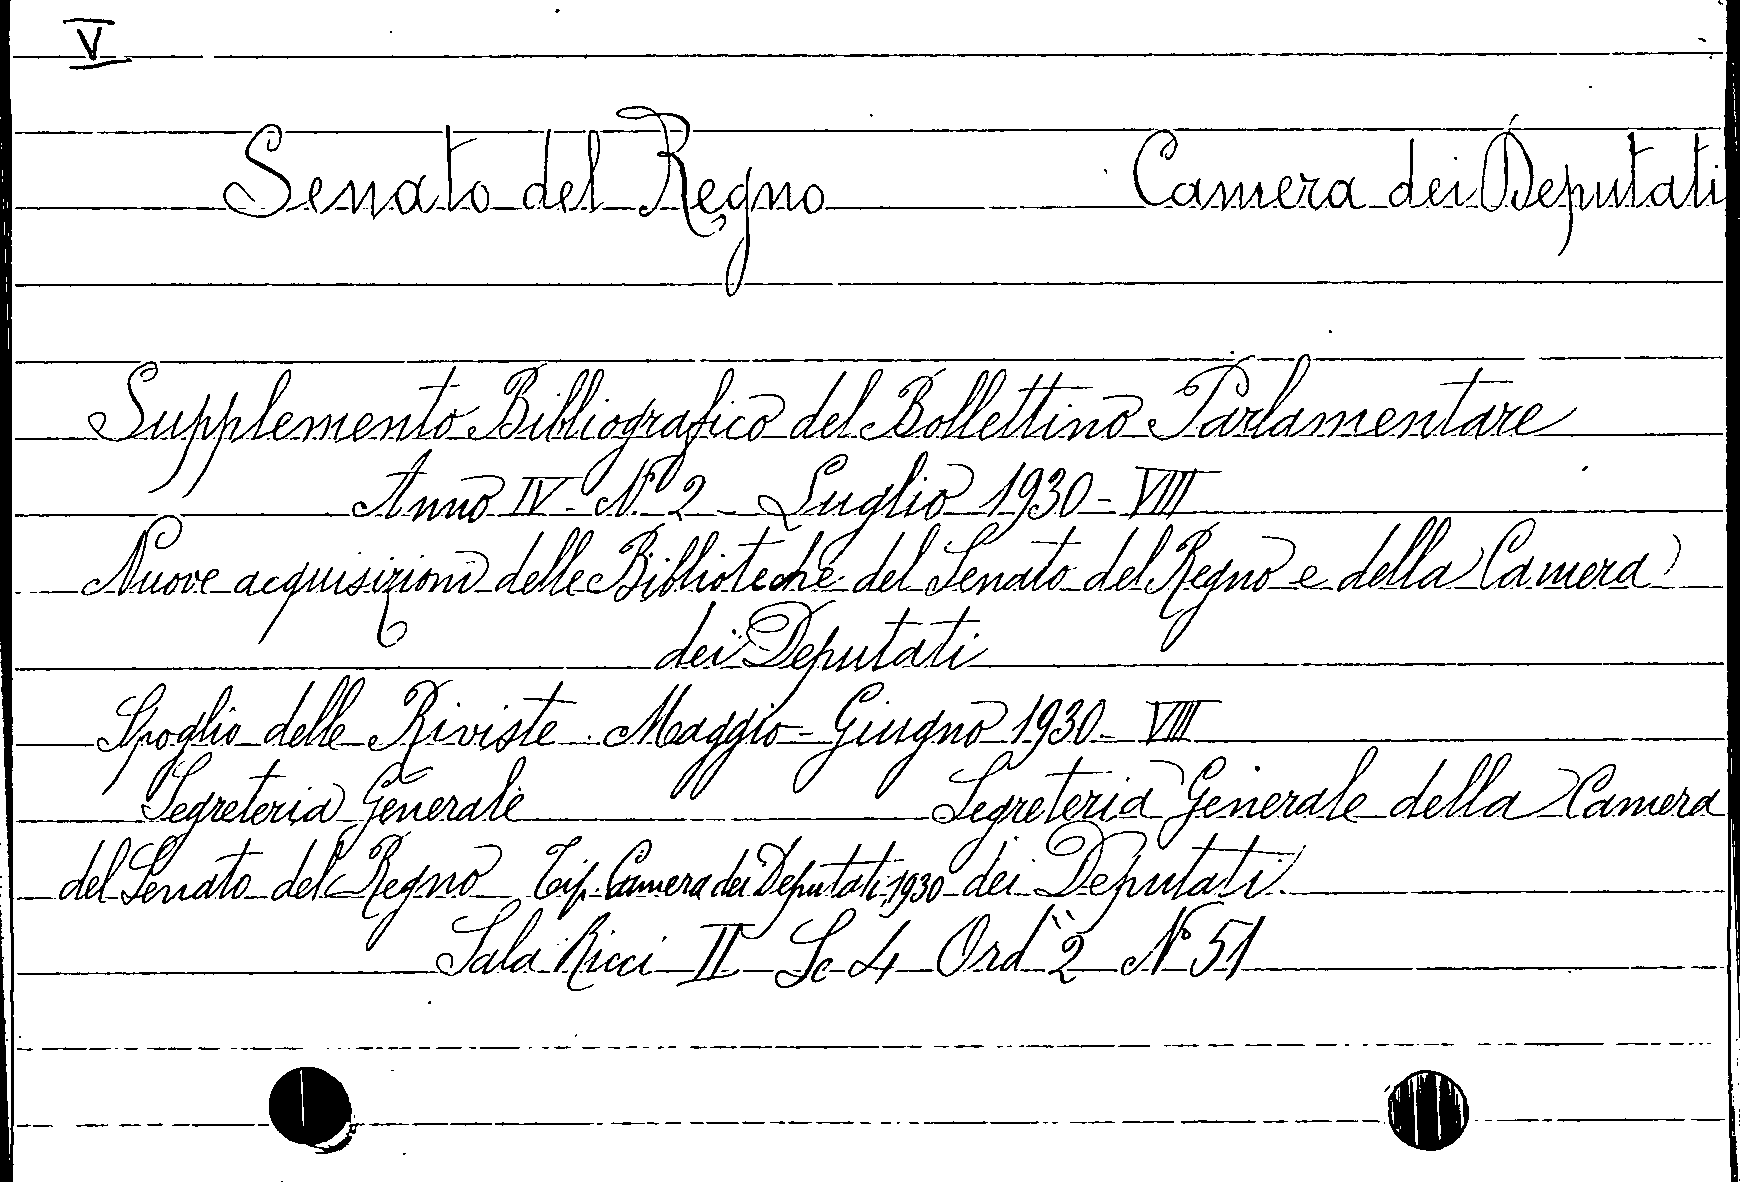 V
Senato del Regno Camera dei Deputati
Supplemento Bibliografico del Bollettino Parlamentare
Anno IV - N. 2 - Luglio 1930 - VIII
Nuove acquisizioni delle Biblioteche del Senato del Regno e della Camera
dei Deputati
Spoglio delle Riviste. Maggio - Giugno 1930 - VIII
Segreteria Generale Segreteria Generale della Camera
del Senato del Regno Tip. Camera dei Deputati 1930 dei Deputati.
Sala Ricci II Sc 4 Ord 2 N° 51